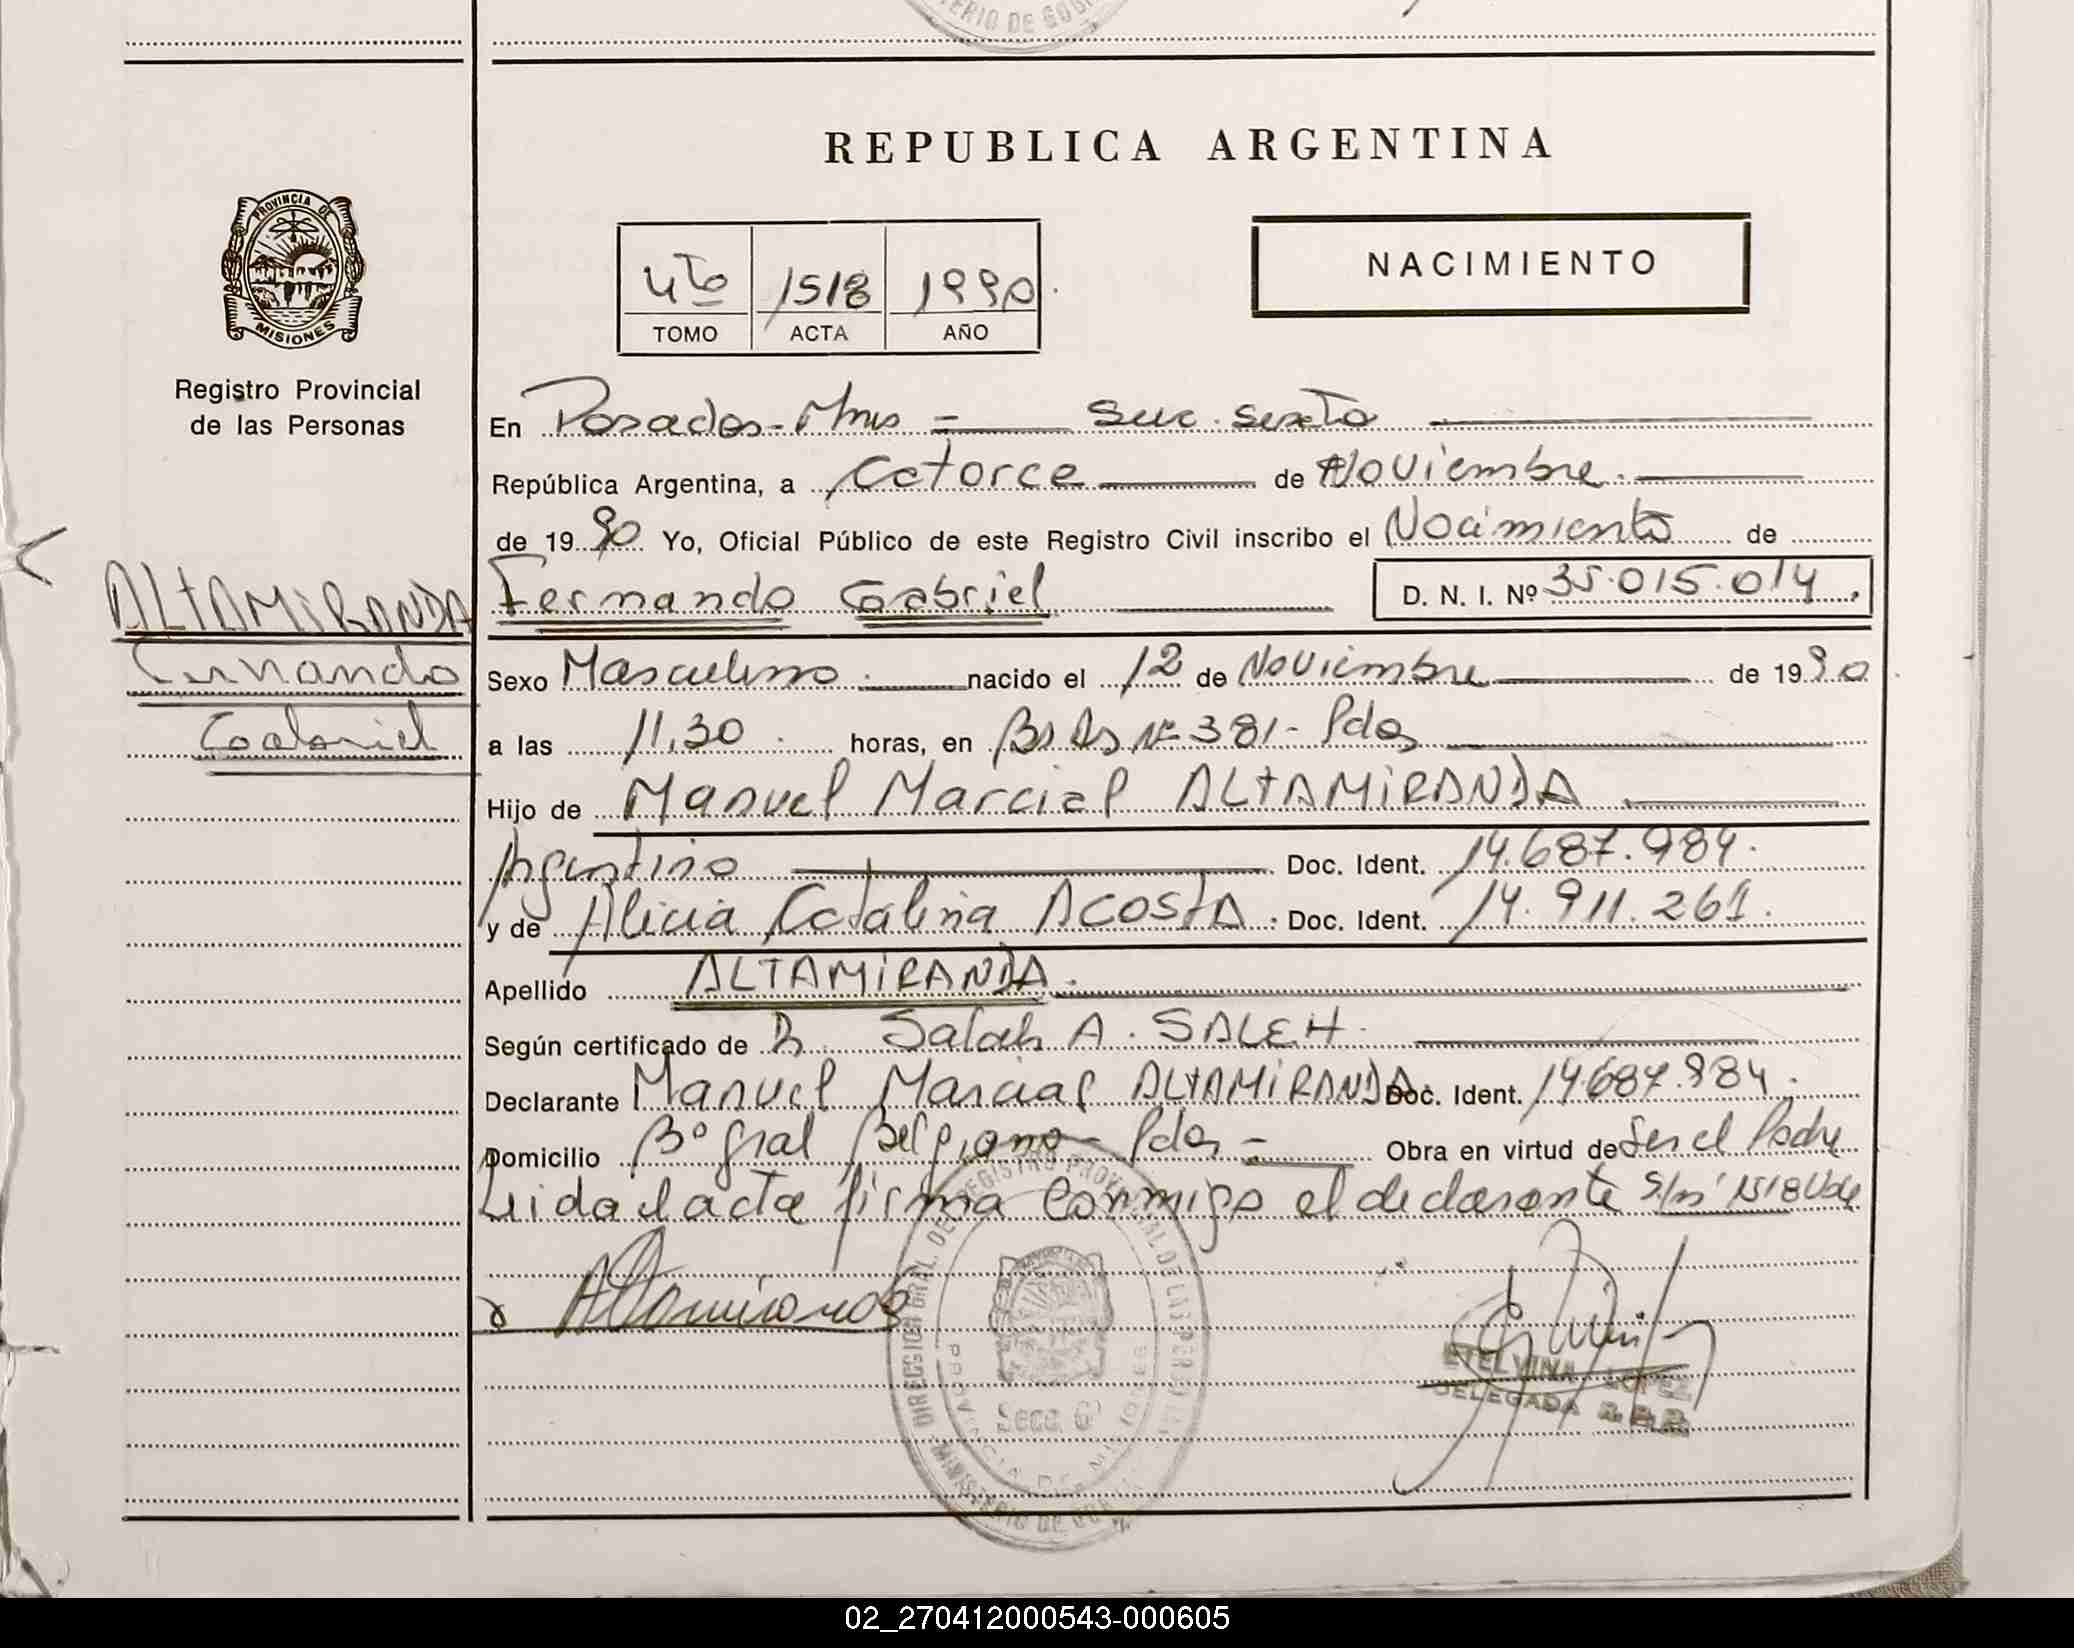 REPUBLICA ARGENTINA
PROVINCIA DE
MISIONES
Registro Provincial
de las Personas
4to 1518 1990
TOMO ACTA AÑO
NACIMIENTO
En Posadas - Mnes = Suc. sexta
República Argentina, a Catorce de Noviembre.
de 1990 Yo, Oficial Público de este Registro Civil inscribo el Nacimiento de
ALTAMIRANDA
Fernando
Gabriel
Fernando Gabriel D. N. I. Nº 35.015.014.
Sexo Masculino. nacido el 12 de Noviembre de 1990
a las 11,30 horas, en Bs As Nº 381 - Pdas
Hijo de Manuel Marcial ALTAMIRANDA
Argentino Doc. Ident. 14.687.984.
y de Alicia Catalina ACOSTA. Doc. Ident. 14.911.261.
Apellido ALTAMIRANDA.
Según certificado de Dr. Salah A. SALEH.
Declarante Manuel Marcial ALTAMIRANDA Doc. Ident. 14.687.984.
Domicilio Bº Gral Belgrano - Pdas = Obra en virtud de Ser el Padre
Leida el acta firma conmigo el declarante S/n 1518 Vale
Altamiranda
DIRECCION GRAL. DEL REGISTRO PROVINCIAL DE LAS PERSONAS
PROVINCIA DE MISIONES
Secc. 6ª
ETELVINA LOPEZ
DELEGADA R. P. P.
02_270412000543-000605